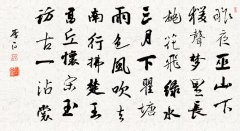 昨夜巫山下
猨聲夢里長
桃花飛綠水
三月下瞿塘
雨色風吹去
南行拂楚王
高丘懷宋玉
訪古一沾裳